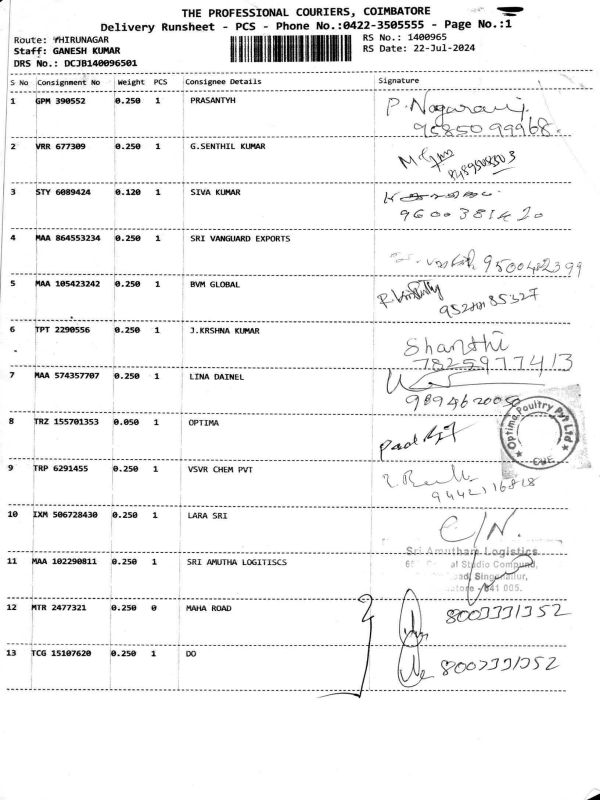 THE PROFESSIONAL COURIERS, COIMBATORE
Delivery Runsheet - PCS - Phone No.:0422-3505555 - Page No.:1
Route: THIRUNAGAR RS No.: 1400965
Staff: GANESH KUMAR RS Date: 22-Jul-2024
DRS No.: DCJB140096501
S No Consignment No Weight PCS Consignee Details Signature
1 GPM 390552 0.250 1 PRASANTYH P. Nagaraj
9585099968.
2 VRR 677309 0.250 1 G.SENTHIL KUMAR
3 STY 6089424 0.120 1 SIVA KUMAR
9600381420
4 MAA 864553234 0.250 1 SRI VANGUARD EXPORTS
9500482399
5 MAA 105423242 0.250 1 BVM GLOBAL
6 TPT 2290556 0.250 1 J.KRSHNA KUMAR Shanthi
7825977413
7 MAA 574357707 0.250 1 LINA DAINEL
9894620050
8 TRZ 155701353 0.050 1 OPTIMA
Optima Poultry Pvt Ltd
CBE
9 TRP 6291455 0.250 1 VSVR CHEM PVT
9442116818
10 IXM 506728430 0.250 1 LARA SRI C/N.
11 MAA 102290811 0.250 1 SRI AMUTHA LOGITISCS
Sri Amutham Logistics
Studio Compund,
Singanallur,
641 005.
12 MTR 2477321 0.250 0 MAHA ROAD 8003331352
13 TCG 15107620 0.250 1 DO 8003331352